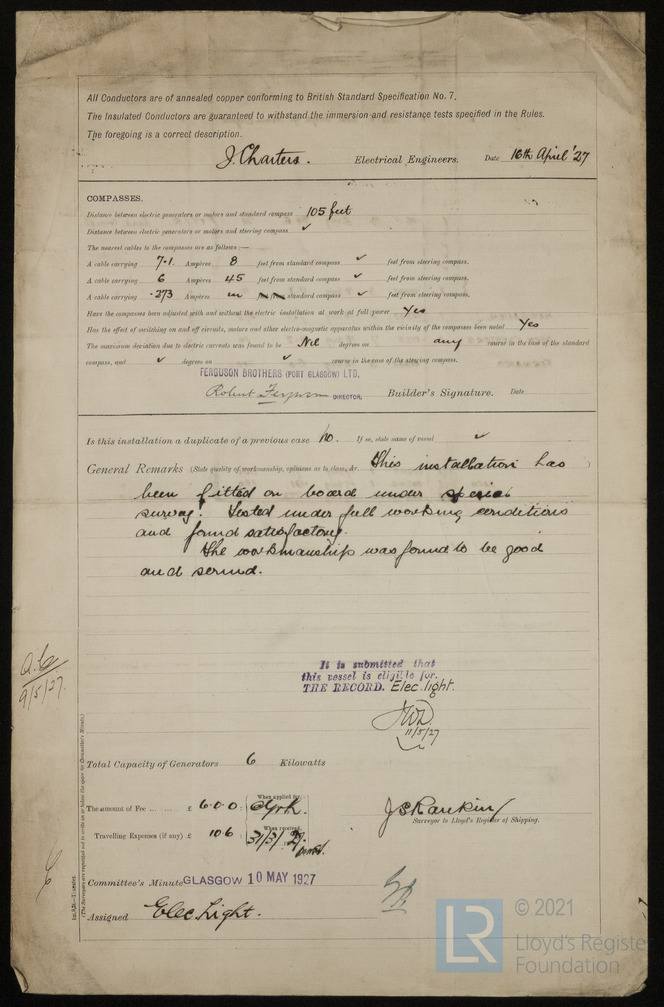 All Conductors are of annealed copper conforming to British Standard Specification No. 7.
The Insulated Conductors are guaranteed to withstand the immersion and resistance tests specified in the Rules.
The foregoing is a correct description.
J. Charters. Electrical Engineers. Date 16th April '27
COMPASSES.
Distance between electric generators or motors and standard compass 105 feet
Distance between electric generators or motors and steering compass ✓
The nearest cables to the compasses are as follows :—
A cable carrying 7.1 Ampères 8 feet from standard compass ✓ feet from steering compass.
A cable carrying 6 Ampères 45 feet from standard compass ✓ feet from steering compass.
A cable carrying .273 Ampères in standard compass ✓ feet from steering compass.
Have the compasses been adjusted with and without the electric installation at work at full power Yes
Has the effect of switching on and off circuits, motors and other electro-magnetic apparatus within the vicinity of the compasses been noted Yes
The maximum deviation due to electric currents was found to be Nil degrees on any course in the case of the standard
compass, and ✓ degrees on ✓ course in the case of the steering compass.
FERGUSON BROTHERS (PORT GLASGOW) LTD.
Robert Ferguson DIRECTOR. Builder's Signature. Date
Is this installation a duplicate of a previous case No. If so, state name of vessel ✓
General Remarks (State quality of workmanship, opinions as to class, &c. This installation has )
been fitted on board under special
survey. Tested under full working conditions
and found satisfactory.
The workmanship was found to be good
and sound.
9/5/27.
It is submitted that
this vessel is eligible for
THE RECORD. Elec. light.
11/5/27
Total Capacity of Generators 6 Kilowatts
The amount of Fee ... ... £ 6.0.0 : When applied for,
J S Rankin
Surveyor to Lloyd's Register of Shipping.
Travelling Expenses (if any) £ 10.6 : When received,
31/3/ 27
Committee's Minute GLASGOW 10 MAY 1927
Assigned Elec. Light.
(The Surveyors are requested not to write on or below the space for Committee's Minute.)
LR
© 2021
Lloyd's Register
Foundation